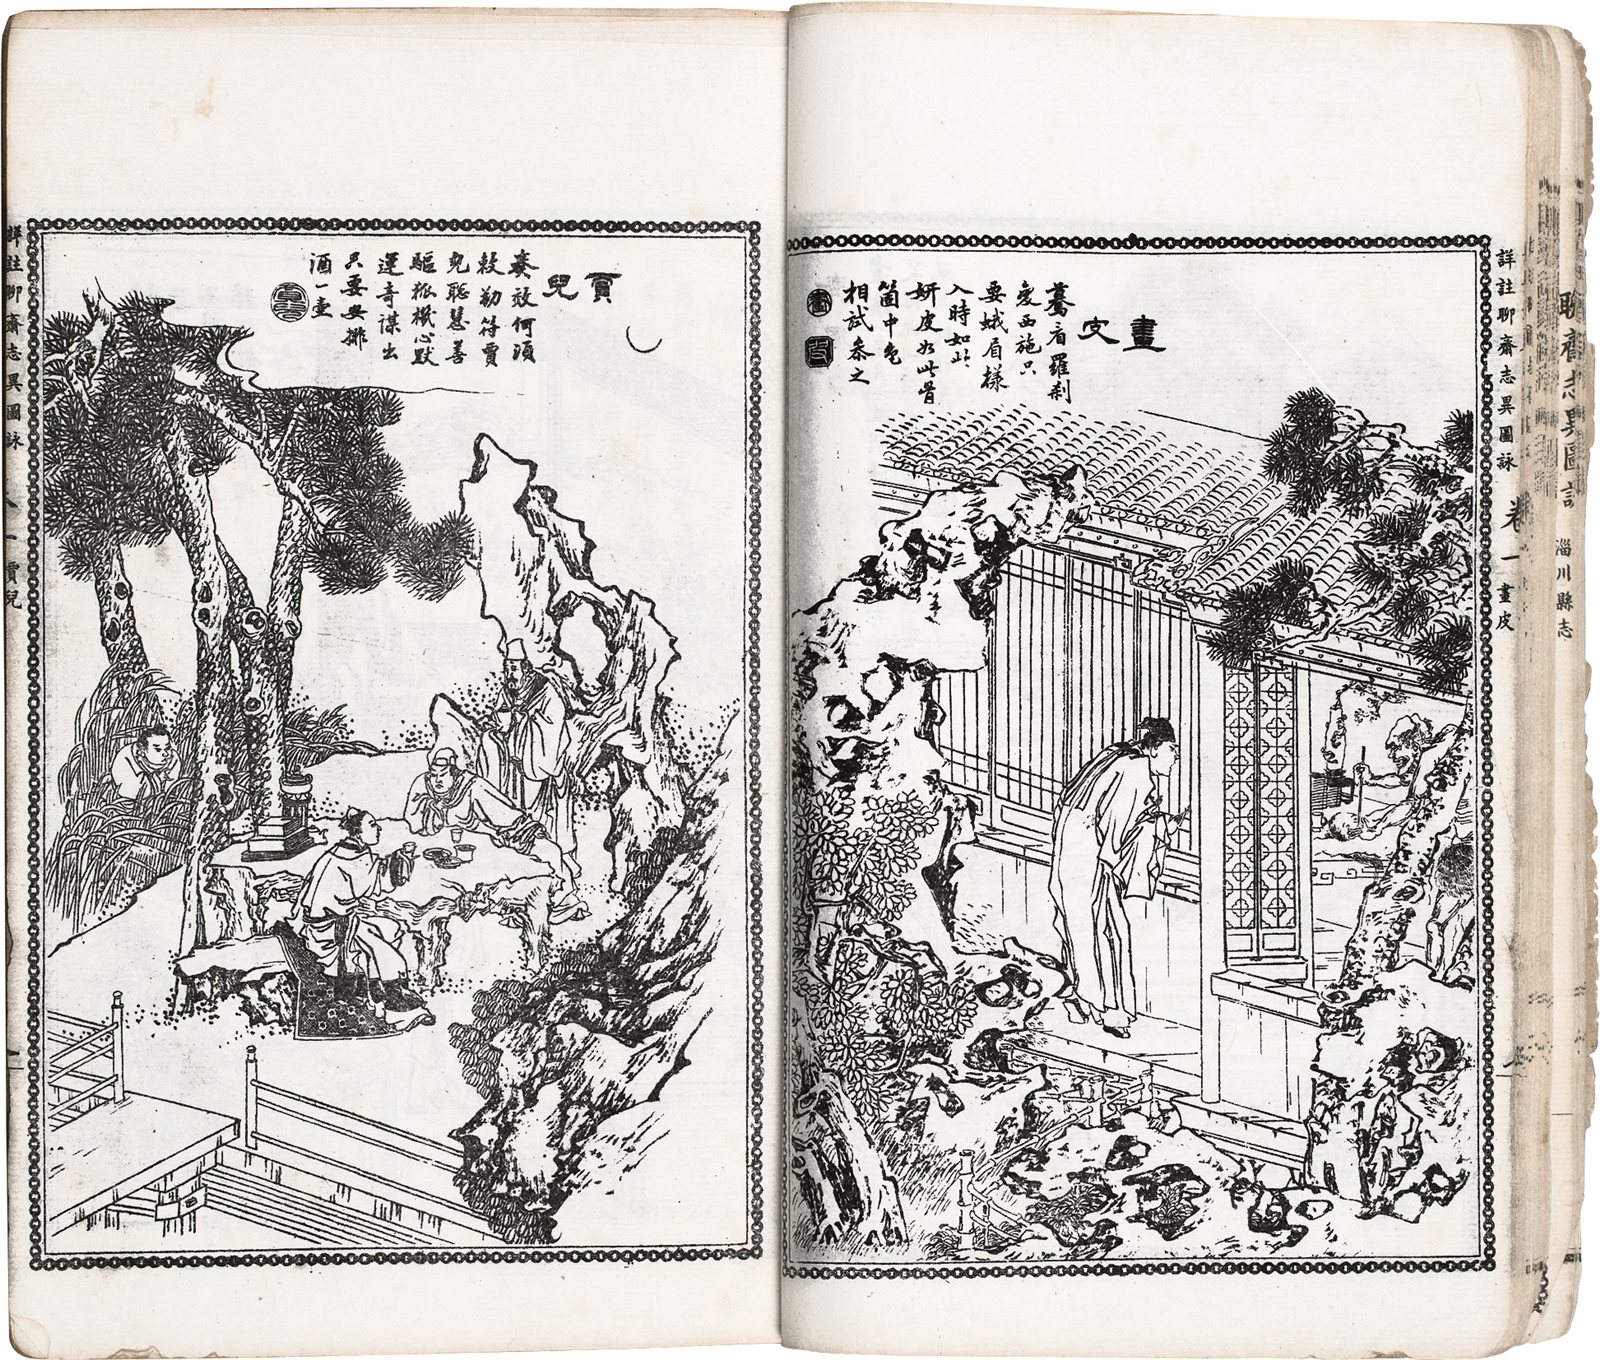 聊齋志異圖詠
淄川縣志
詳註聊齋志異圖詠 卷一 畫皮
畫皮
驀看羅刹
變西施只
要娥眉樣
入時如此
妍皮如此骨
箇中色
相試參之
賈兒
奏效何須
敕勒符賈
兒聰慧善
驅狐機心默
運奇謀出
只要安排
酒一壺
詳註聊齋志異圖詠 一 賈兒